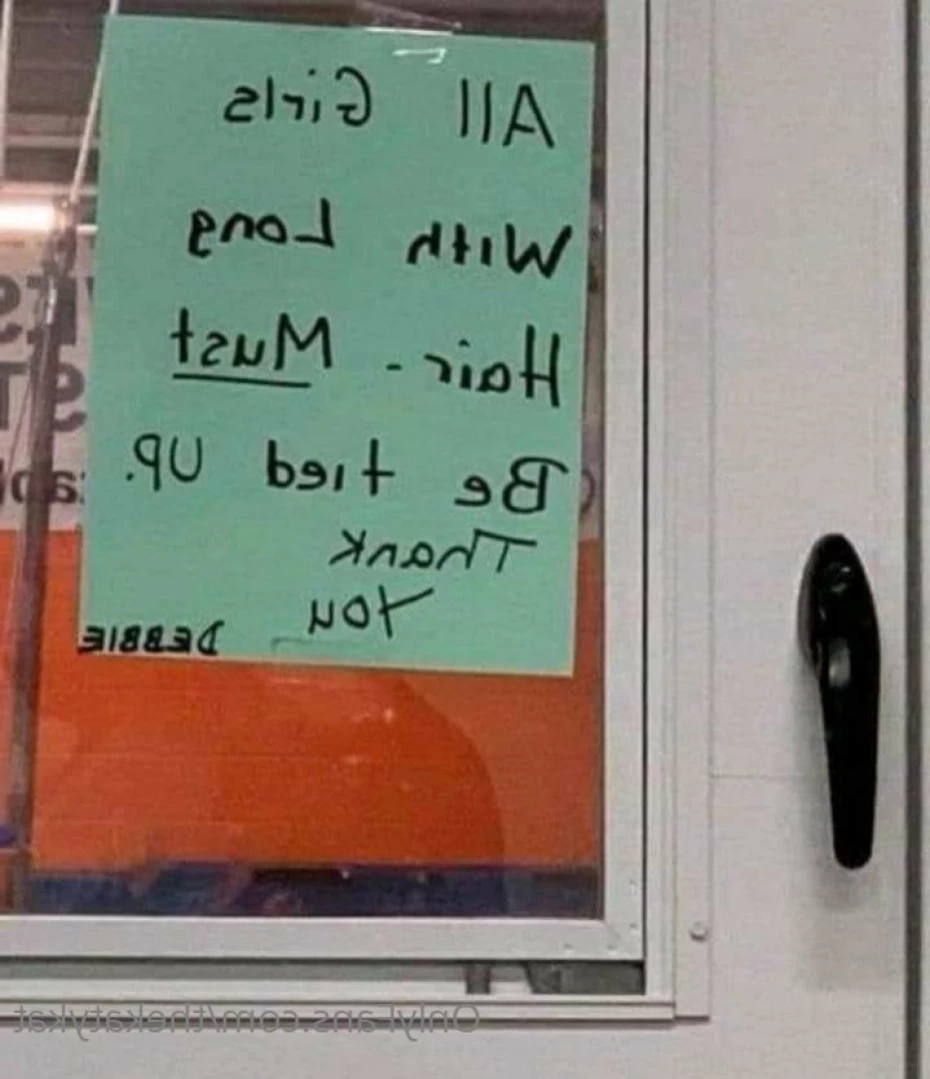 All Girls
With Long
Hair - Must
Be tied UP.
Thank
You
DEBBIE
OnlyFans.com/thekatykat